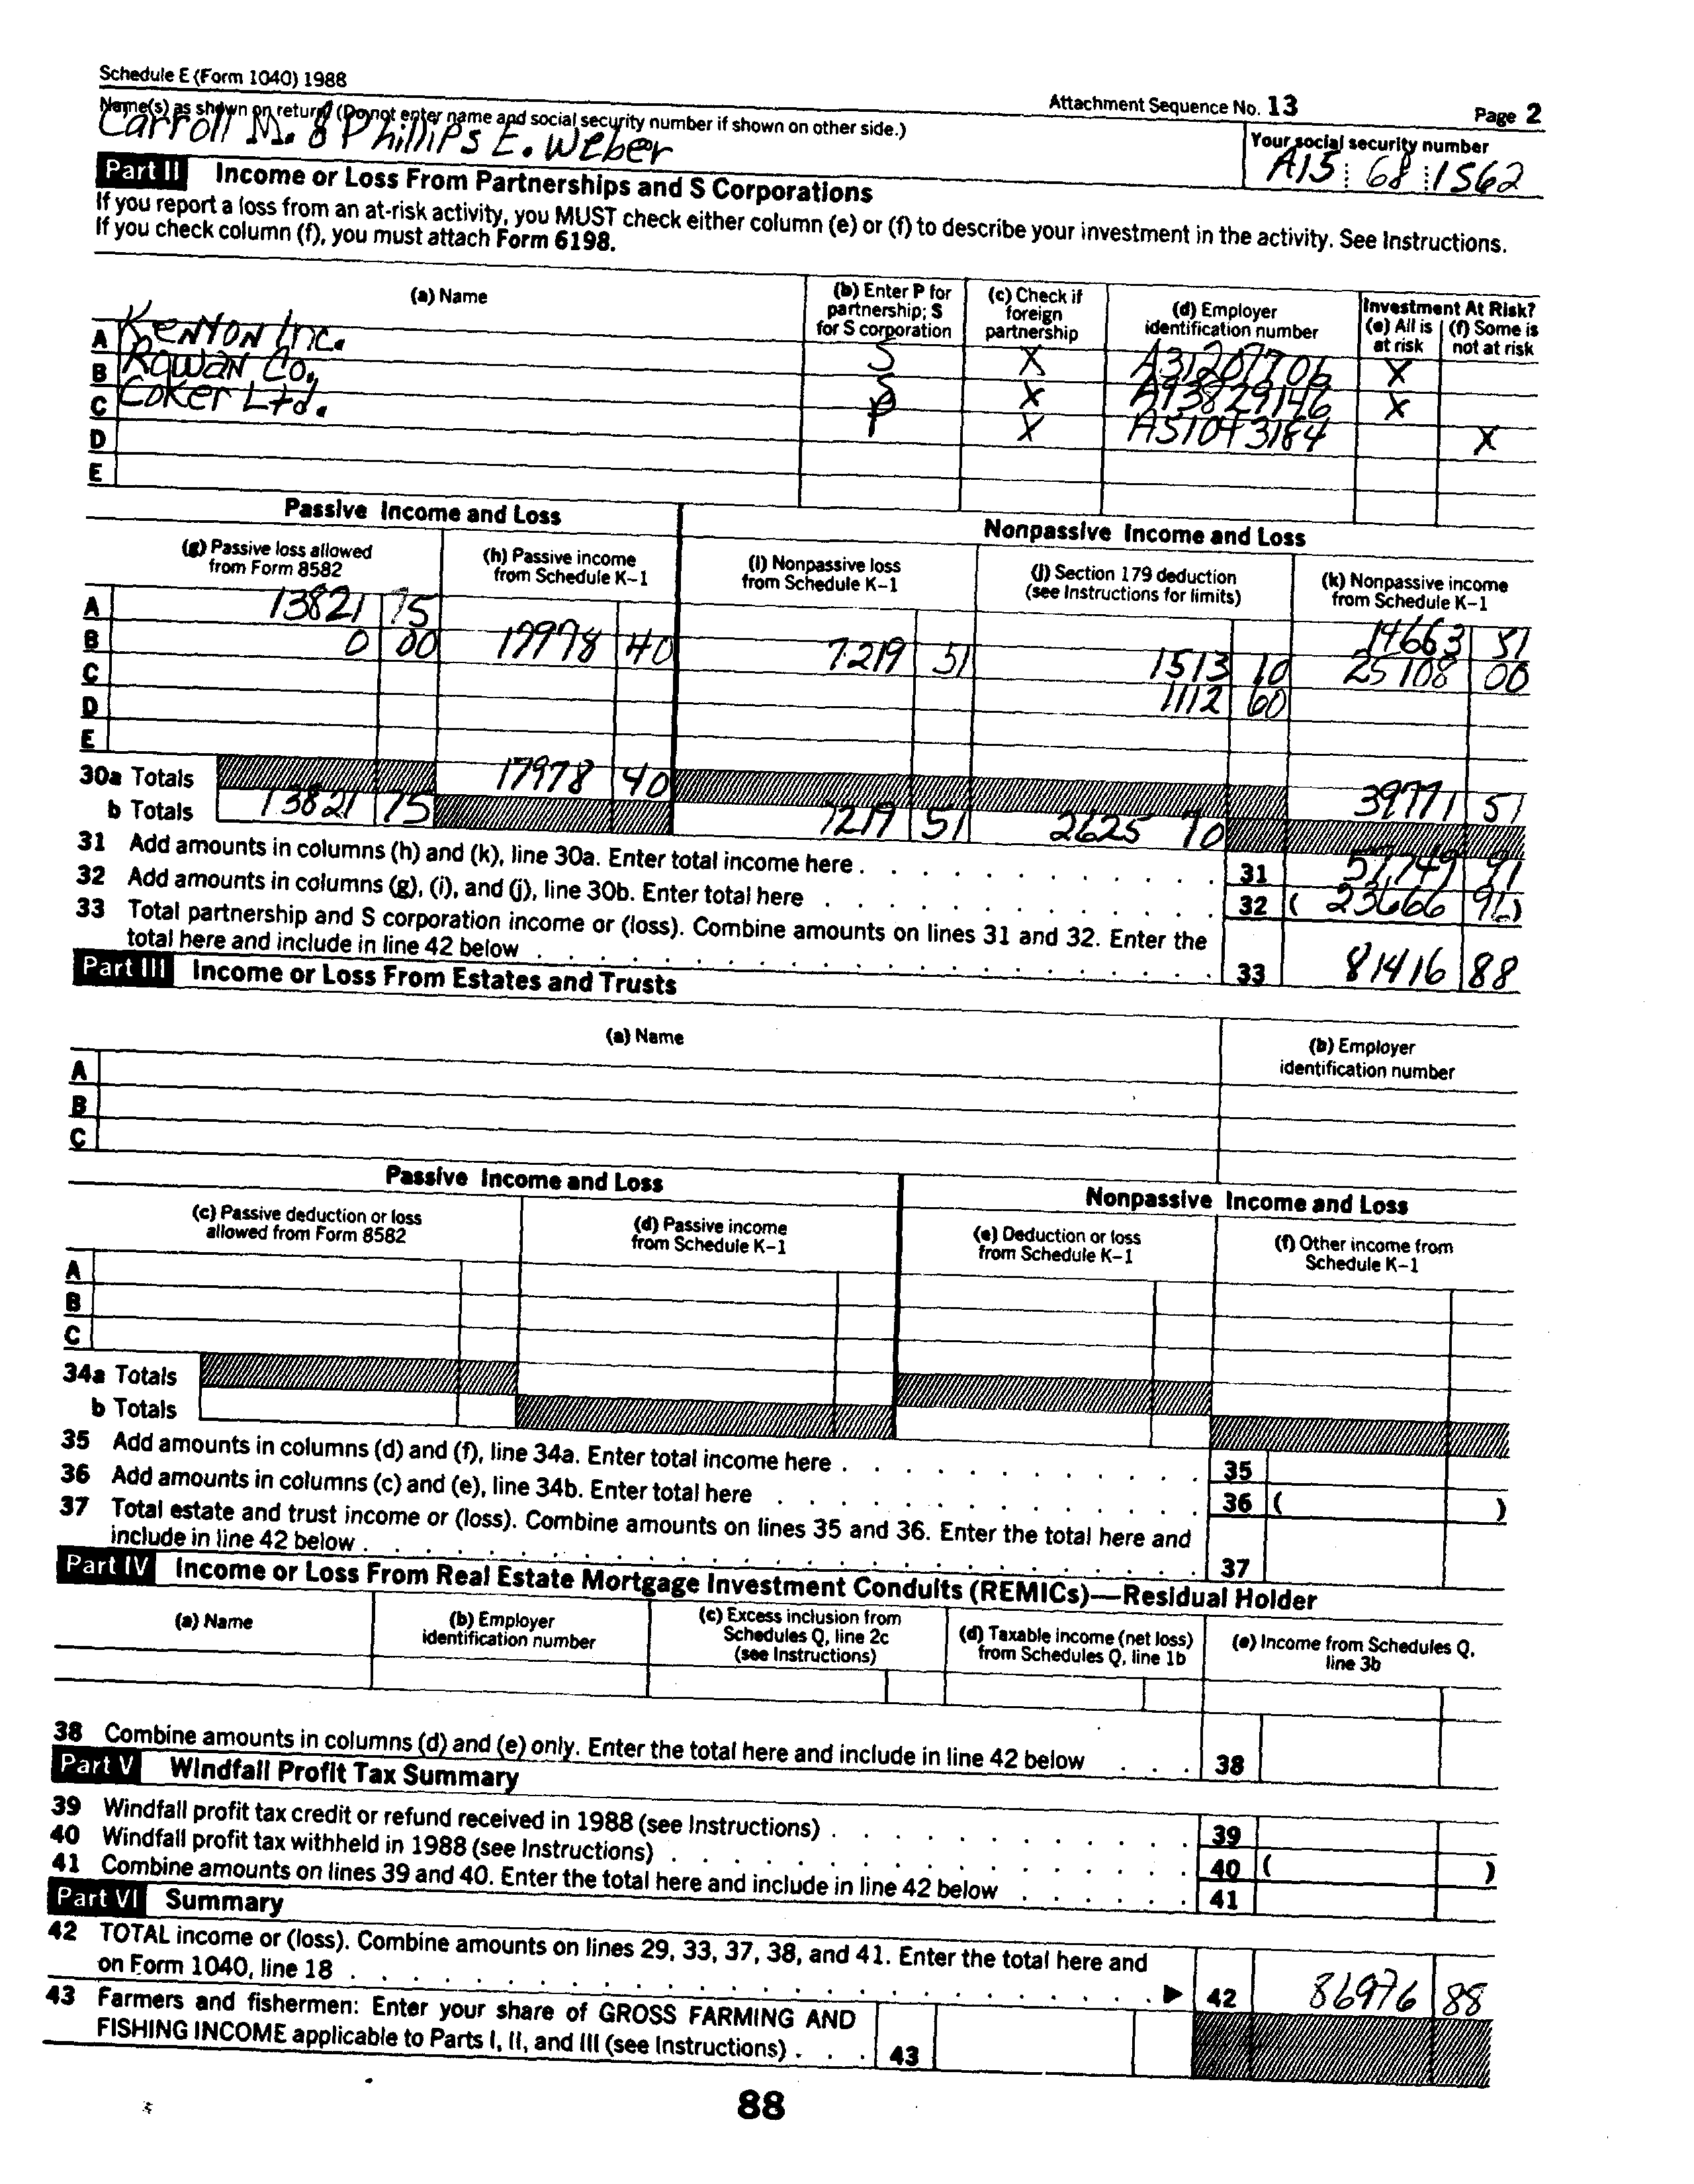 Schedule E (Form 1040) 1988
Attachment Sequence No. 13
Page 2
Name(s) as shown on return (Do not enter name and social security number if shown on other side.)
Carroll M. & Phillips E. Weber
Your social security number
A15 68 1562
Part II Income or Loss From Partnerships and S Corporations
If you report a loss from an at-risk activity, you MUST check either column (e) or (f) to describe your investment in the activity. See Instructions.
If you check column (f), you must attach Form 6198.
(a) Name
(b) Enter P for partnership; S for S corporation
(c) Check if foreign partnership
(d) Employer identification number
Investment At Risk?
(e) All is at risk
(f) Some is not at risk
A Kenton Inc. S X A31207706 X
B Rowan Co. S X A93829146 X
C Coker Ltd. P X A51043184 X
D
E
Passive Income and Loss
Nonpassive Income and Loss
(g) Passive loss allowed from Form 8582
(h) Passive income from Schedule K–1
(i) Nonpassive loss from Schedule K–1
(j) Section 179 deduction (see Instructions for limits)
(k) Nonpassive income from Schedule K–1
A 13821 75 14663 51
B 0 00 17978 40 7219 51 1513 10 25108 00
C 1112 60
D
E
30a Totals 17978 40 39771 51
b Totals 13821 75 7219 51 2625 70
31 Add amounts in columns (h) and (k), line 30a. Enter total income here 31 57749 91
32 Add amounts in columns (g), (i), and (j), line 30b. Enter total here 32 ( 23666 96)
33 Total partnership and S corporation income or (loss). Combine amounts on lines 31 and 32. Enter the
total here and include in line 42 below 33 81416 88
Part III Income or Loss From Estates and Trusts
(a) Name
(b) Employer identification number
A
B
C
Passive Income and Loss
Nonpassive Income and Loss
(c) Passive deduction or loss allowed from Form 8582
(d) Passive income from Schedule K–1
(e) Deduction or loss from Schedule K–1
(f) Other income from Schedule K–1
A
B
C
34a Totals
b Totals
35 Add amounts in columns (d) and (f), line 34a. Enter total income here 35
36 Add amounts in columns (c) and (e), line 34b. Enter total here 36 ( )
37 Total estate and trust income or (loss). Combine amounts on lines 35 and 36. Enter the total here and
include in line 42 below 37
Part IV Income or Loss From Real Estate Mortgage Investment Conduits (REMICs)—Residual Holder
(a) Name
(b) Employer identification number
(c) Excess inclusion from Schedules Q, line 2c (see Instructions)
(d) Taxable income (net loss) from Schedules Q, line 1b
(e) Income from Schedules Q, line 3b
38 Combine amounts in columns (d) and (e) only. Enter the total here and include in line 42 below 38
Part V Windfall Profit Tax Summary
39 Windfall profit tax credit or refund received in 1988 (see Instructions) 39
40 Windfall profit tax withheld in 1988 (see Instructions) 40 ( )
41 Combine amounts on lines 39 and 40. Enter the total here and include in line 42 below 41
Part VI Summary
42 TOTAL income or (loss). Combine amounts on lines 29, 33, 37, 38, and 41. Enter the total here and
on Form 1040, line 18 ▶ 42 86976 88
43 Farmers and fishermen: Enter your share of GROSS FARMING AND
FISHING INCOME applicable to Parts I, II, and III (see Instructions) 43
88